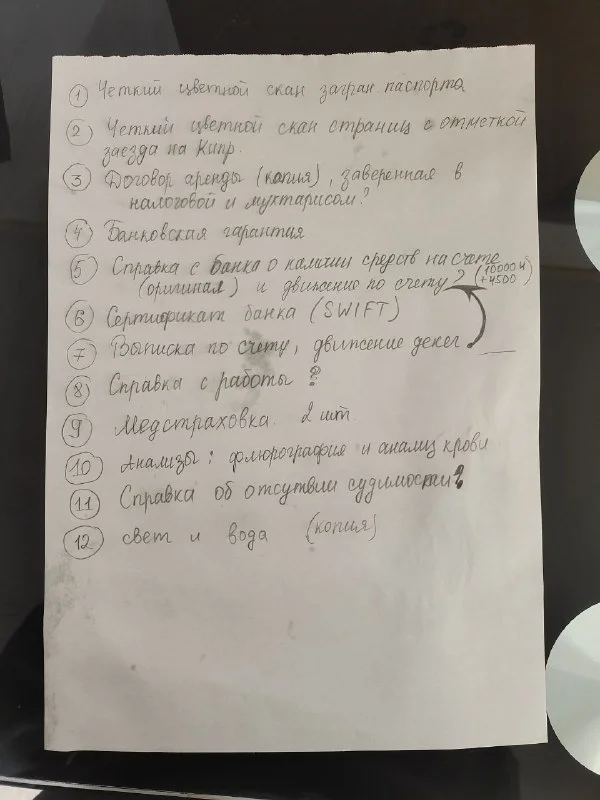 1 Четкий цветной скан загран паспорта
2 Четкий цветной скан страниц с отметкой
заезда на Кипр.
3 Договор аренды (копия), заверенная в
налоговой и мухтарисом?
4 Банковская гарантия
5 Справка с банка о наличии средств на счете
(оригинал) и движение по счету ? (10000 и
+4500)
6 Сертификат банка (SWIFT)
7 Выписка по счету, движение денег
8 Справка с работы ?
9 Медстраховка 2 шт
10 Анализы: флюрография и анализ крови
11 Справка об отсутвии судимости?
12 свет и вода (копия)